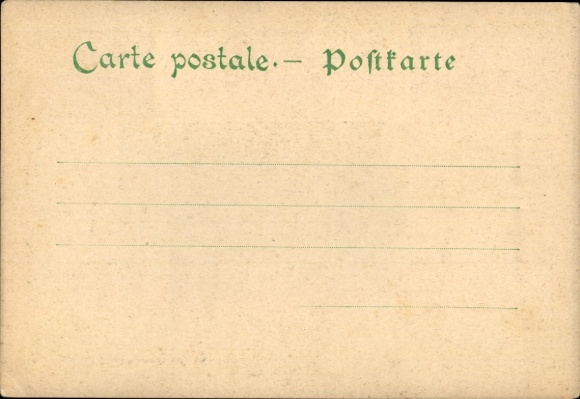 Carte postale.— Poſtkarte